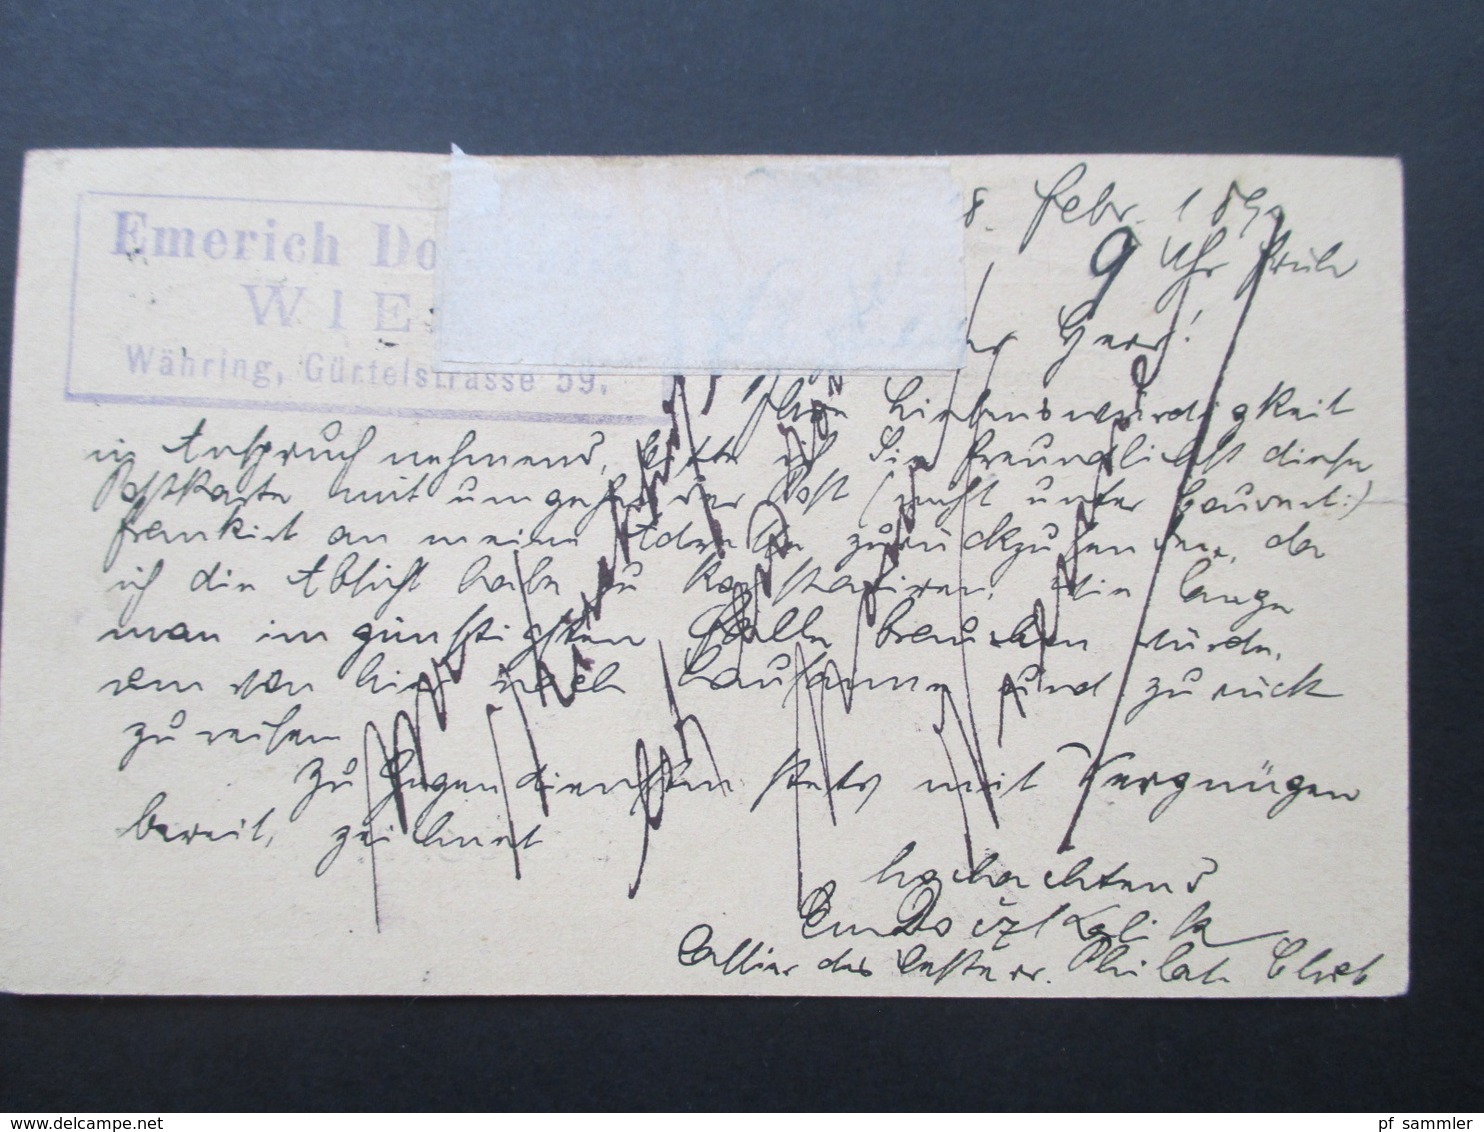 Emerich Do
WIE
Währing, Gürtelstrasse 59.
8. Febr. 189
9 Uhr Früh
Herr!
Ihre Liebenswürdigkeit
in Anspruch nehmend, bitte ich Sie freundlichst diese
Postkarte mit umgehender Post (nicht unter Couvert:)
frankirt an meine Adresse zurückzusenden, da
ich die Absicht habe zu konstatiren, wie lange
man im günstigsten Falle brauchen würde,
um von hier nach Lausanne und zurück
zu reisen
Zu Gegendiensten stets mit Vergnügen
bereit, zeichnet
hochachtend
Cassier des Philat. Club
pf_sammler
delcampe.net